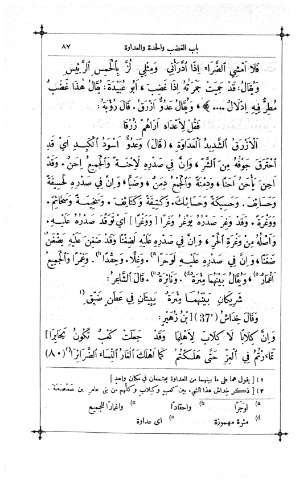 باب الغضب والحدة والعداوة ٨٧
فَلَا أَمْشِي الضَّرَاءَ إِذَا ادَّرَأَنِي وَمِثْلِي لُزَّ بِالْحَمِسِ الرَّئِيسِ
وَيُقَالُ قَدْ حَمِيَتْ جَمْرَتُهُ إِذَا غَضِبَ . أَبُو عُبَيْدَةَ . يُقَالُ هٰذَا غَضَبٌ
مُطِرٌّ فِيهِ إِدْلَالٌ ... وَيُقَالُ عَدُوٌّ أَزْرَقُ . قَالَ رُؤْبَةُ :
فَقُلْ لِأَعْدَاءٍ أَرَاهُمْ زُرْقَا
الْأَزْرَقُ الشَّدِيدُ الْعَدَاوَةِ . (قَالَ) وَعَدُوٌّ أَسْوَدُ الْكَبِدِ أَيْ قَدِ
احْتَرَقَ جَوْفُهُ مِنَ الشَّرِّ . وَإِنَّ فِي صَدْرِهِ لَإِحْنَةً وَالْجَمِيعُ إِحَنٌ . وَقَدْ
أَحِنَ يَأْحَنُ أَحَنًا . وَدِمْنَةً وَالْجَمْعُ دِمَنٌ . وَضَبًّا . وَإِنَّ فِي صَدْرِهِ لَحَسِيفَةً
وَحَسَائِفَ . وَحَسِيكَةً وَحَسَائِكَ . وَكَتِيفَةً وَكَتَائِفَ . وَسَخِيمَةً وَسَخَائِمَ .
وَوَغْرَةً . وَقَدْ وَغِرَ صَدْرُهُ يَوْغَرُ وَغَرًا [وَوَغْرًا] أَيْ تَوَقَّدَ صَدْرُهُ عَلَيْهِ .
وَأَصْلُهُ مِنْ وَغْرَةِ الْحَرِّ . وَإِنَّ فِي صَدْرِهِ عَلَيْهِ لَضِغْنًا وَقَدْ ضَغِنَ عَلَيْهِ يَضْغَنُ
ضَغَنًا . وَإِنَّ فِي صَدْرِهِ عَلَيْهِ لَوَحَرًا . وَغِلًّا . وَحِقْدًا . وَغِمْرًا وَالْجَمِيعُ
أَغْمَارٌ . وَيُقَالُ بَيْنَهُمَا مِئْرَةٌ . وَنَائِرَةٌ . قَالَ الشَّاعِرُ :
شَرِيكَانِ بَيْنَهُمَا مِئْرَةٌ يَبِيتَانِ فِي عَطَنٍ ضَيِّقِ
وَقَالَ خِدَاشُ (37ʳ) [بْنُ زُهَيْرٍ] :
وَإِنَّ كِلَابًا لَا كِلَابَ لِأَهْلِهَا وَقَدْ جَعَلَتْ كَعْبٌ تَكُونُ يَحَابِرَا
تَمَأَّرْتُمُ فِي الْعِزِّ حَتَّى هَلَكْتُمُ كَمَا أَهْلَكَ الْغَارُ النِّسَاءَ الضَّرَائِرَا (٨٠)
١) يقول هما على ما بينهما من العداوة يجتمعان في مكان واحد
٢) ذكر خداش هذا التي بين كعب وكلاب وكلهم من بني عامر بن صعصعة
لوحرًا واحقادًا واغمارًا للجميع
مئرة مهموزة اي عداوة